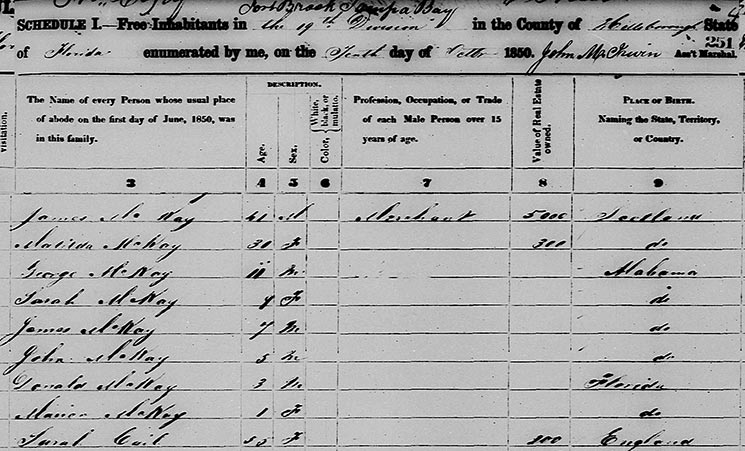 Fort Brook Tampa Bay
SCHEDULE I.—Free Inhabitants in the 19th Division in the County of Hillsborough State
of Florida enumerated by me, on the Tenth day of Octbr 1850. John McIrwin Ass't Marshal.
251
visitation.
The Name of every Person whose usual place of abode on the first day of June, 1850, was in this family.
DESCRIPTION.
Age.
Sex.
Color, White, black, or mulatto.
Profession, Occupation, or Trade of each Male Person over 15 years of age.
Value of Real Estate owned.
PLACE OF BIRTH.
Naming the State, Territory, or Country.
3 4 5 6 7 8 9
James McKay 41 M Merchant 5,000 Scotland
Matilda McKay 30 F 300 do
George McKay M Alabama
Sarah McKay 9 F do
James McKay 7 M do
John McKay 5 M do
Donald McKay 3 M Florida
McKay 1 F do
Sarah Cail 55 F England